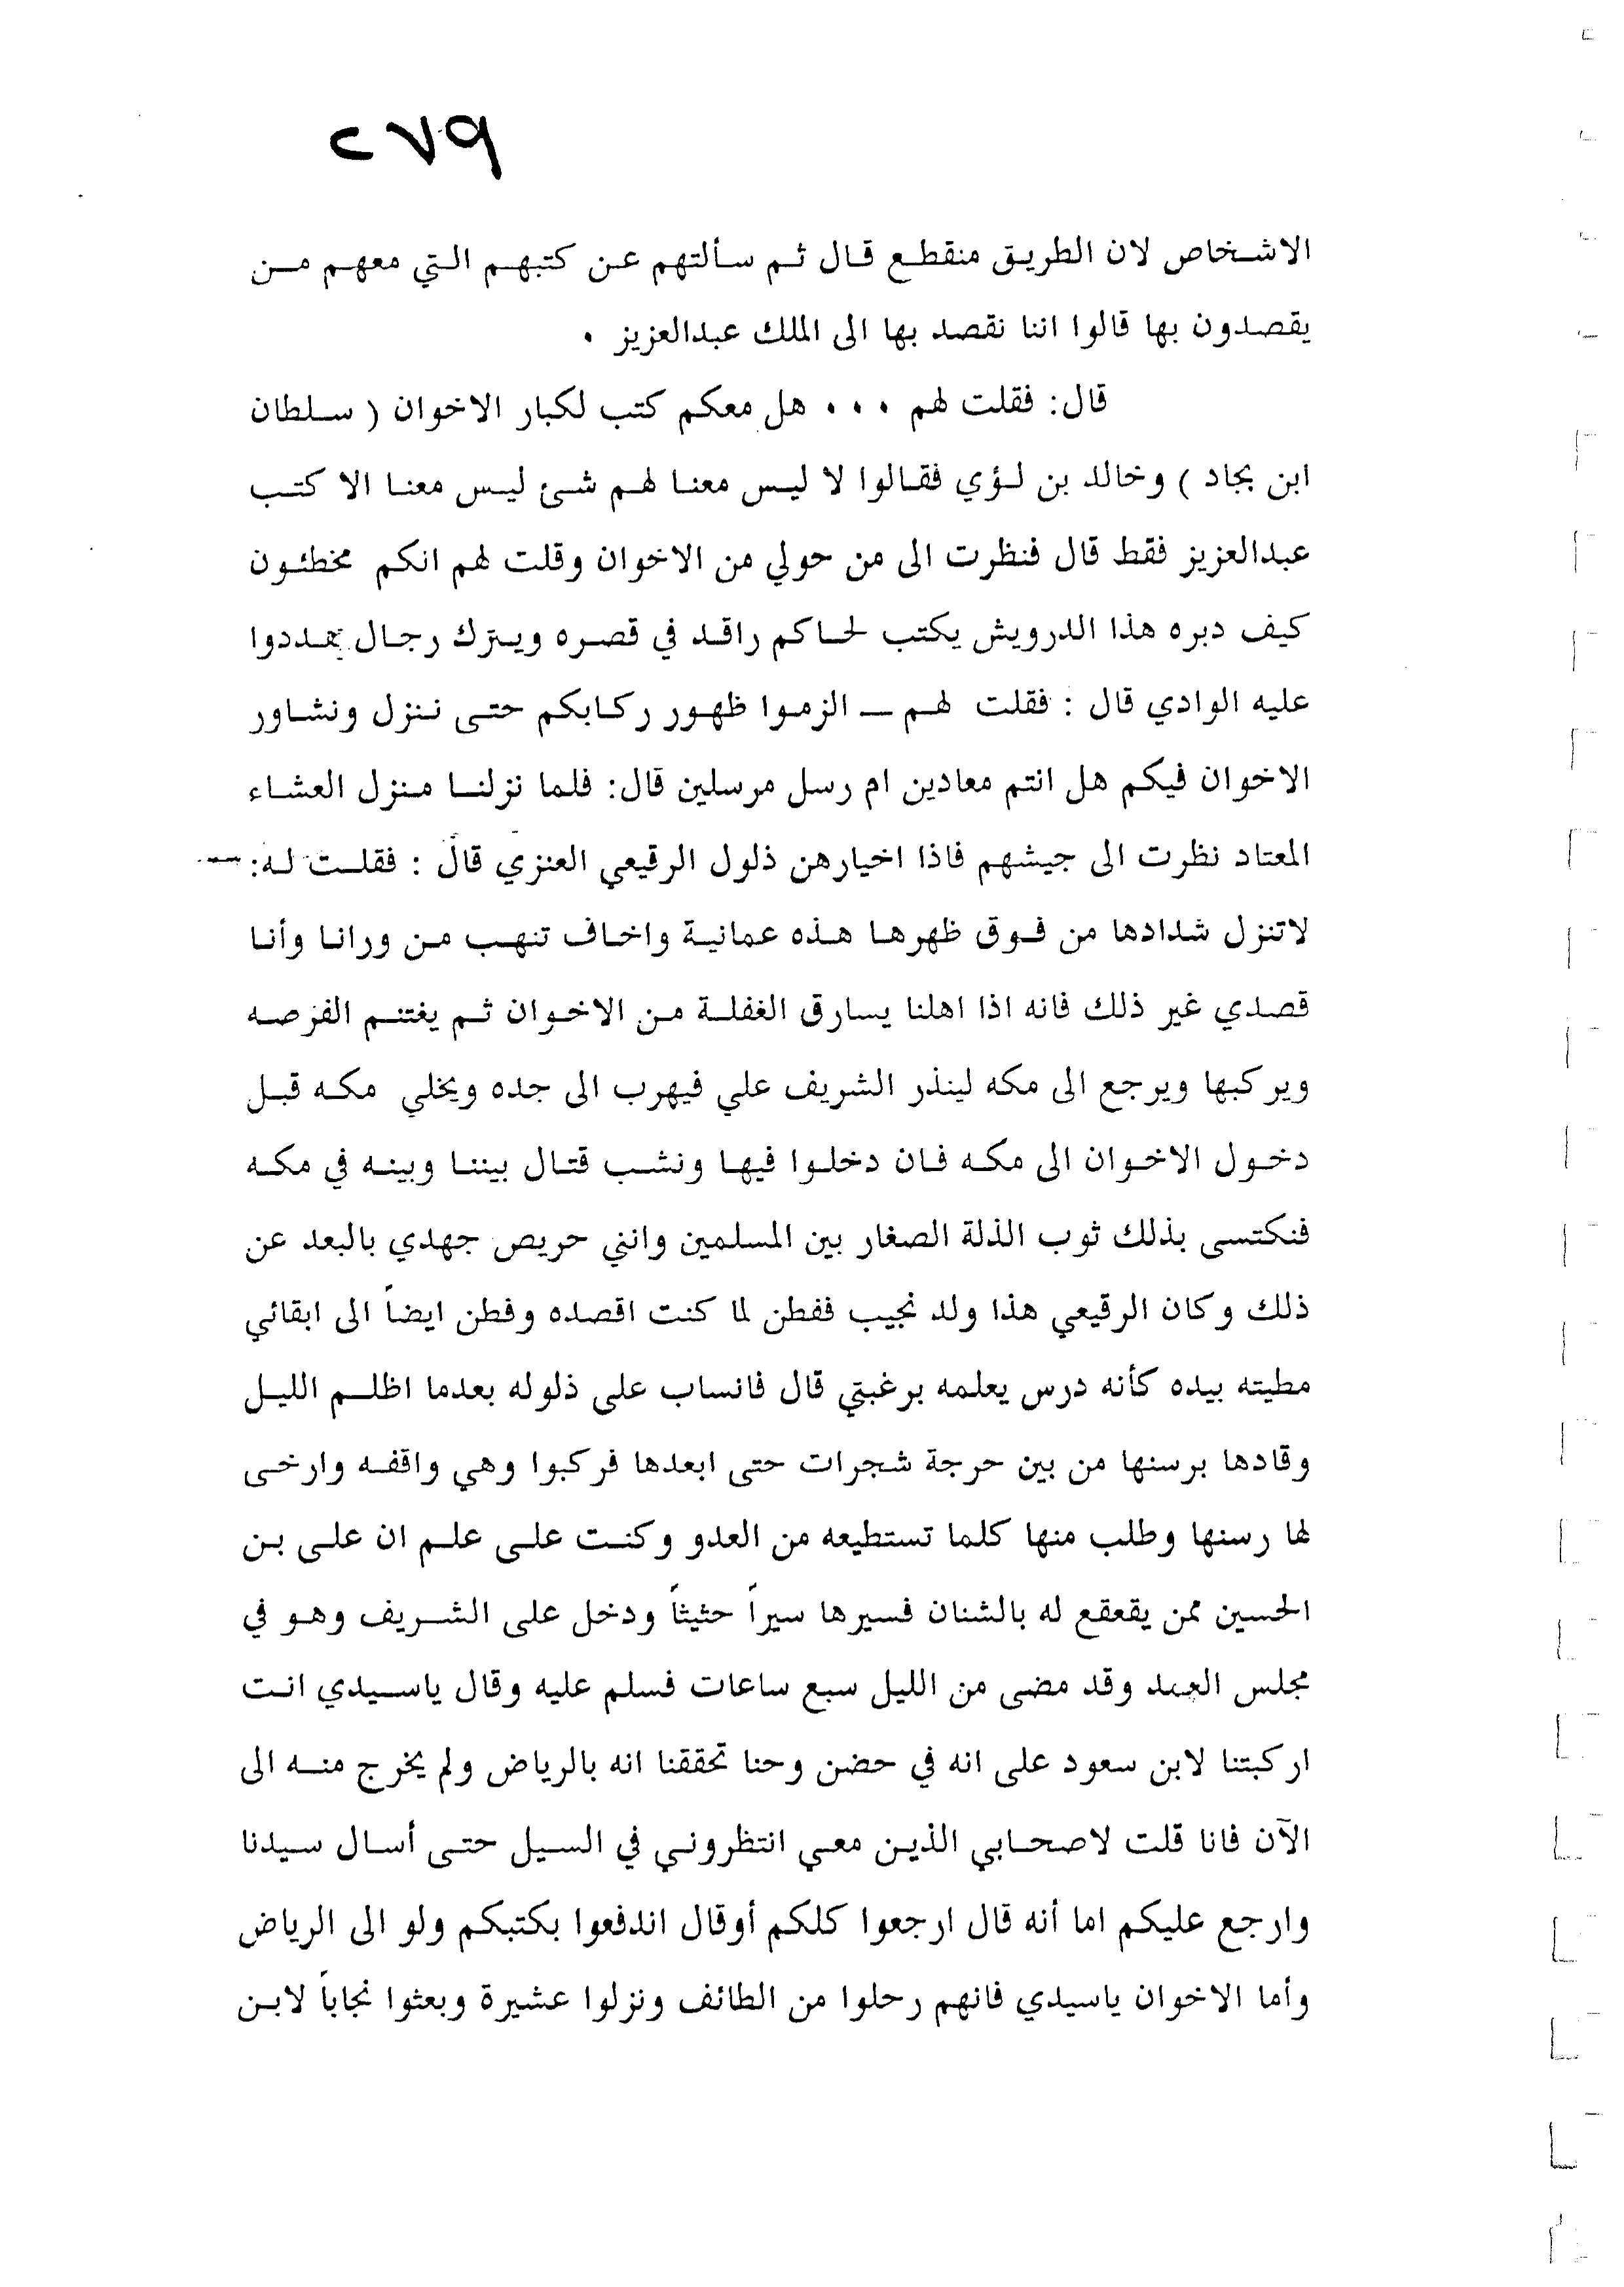 ٢٧٩
الاشخاص لان الطريق منقطع قال ثم سألتهم عن كتبهم التي معهم من
يقصدون بها قالوا اننا نقصد بها الى الملك عبدالعزيز .
قال: فقلت لهم ... هل معكم كتب لكبار الاخوان ( سلطان
ابن بجاد ) وخالد بن لؤي فقالوا لا ليس معنا لهم شئ ليس معنا الا كتب
عبدالعزيز فقط قال فنظرت الى من حولي من الاخوان وقلت لهم انكم مخطئون
كيف دبره هذا الدرويش يكتب لحاكم راقد في قصره ويترك رجال يمددوا
عليه الوادي قال : فقلت لهم ــ الزموا ظهور ركابكم حتى ننزل ونشاور
الاخوان فيكم هل انتم معادين ام رسل مرسلين قال: فلما نزلنا منزل العشاء
المعتاد نظرت الى جيشهم فاذا اخيارهن ذلول الرقيعي العنزي قال : فقلت له: ــ
لاتنزل شدادها من فوق ظهرها هذه عمانية واخاف تنهب من ورانا وأنا
قصدي غير ذلك فانه اذا اهلنا يسارق الغفلة من الاخوان ثم يغتنم الفرصه
ويركبها ويرجع الى مكه لينذر الشريف علي فيهرب الى جده ويخلي مكه قبل
دخول الاخوان الى مكه فان دخلوا فيها ونشب قتال بيننا وبينه في مكه
فنكتسى بذلك ثوب الذلة الصغار بين المسلمين وانني حريص جهدي بالبعد عن
ذلك وكان الرقيعي هذا ولد نجيب ففطن لما كنت اقصده وفطن ايضاً الى ابقائي
مطيته بيده كأنه درس يعلمه برغبتي قال فانساب على ذلوله بعدما اظلم الليل
وقادها برسنها من بين حرجة شجرات حتى ابعدها فركبوا وهي واقفه وارخى
لها رسنها وطلب منها كلما تستطيعه من العدو وكنت على علم ان على بن
الحسين ممن يقعقع له بالشنان فسيرها سيراً حثيثاً ودخل على الشريف وهو في
مجلس العمد وقد مضى من الليل سبع ساعات فسلم عليه وقال ياسيدي انت
اركبتنا لابن سعود على انه في حضن وحنا تحققنا انه بالرياض ولم يخرج منه الى
الآن فانا قلت لاصحابي الذين معي انتظروني في السيل حتى أسال سيدنا
وارجع عليكم اما أنه قال ارجعوا كلكم أوقال اندفعوا بكتبكم ولو الى الرياض
وأما الاخوان ياسيدي فانهم رحلوا من الطائف ونزلوا عشيرة وبعثوا نجاباً لابن